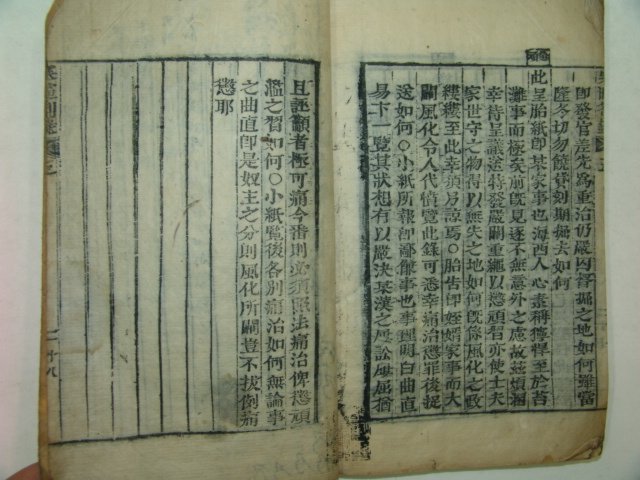 印發官差先爲重治仍嚴囚督掘之地如何雖當
隆冬切勿饒貸刻期掘去如何
此呈胎紙卽某家事也海西人心素稱獰悍至於苔
灘事而極矣前旣見逐不無意外之慮故玆煩溷
幸待呈議送特發嚴關重繩以懲頑習亦使士夫
家世守之物得以無失之地如何旣係風化之政
縷縷至此幸須另諒焉○胎告卽姪婿家事而大
關風化令人代憤覽此錄可悉幸痛治懲罪後捉
送如何○小紙所報卽鄙館事也事理明白曲直
易卞一覽其狀想有以嚴決某漢之屢訟屢屈猶
且誣顴者極可痛今番則必須照法痛治俾懲頑
濫之習如何○小紙覽後各別痛治如何無論事
之曲直卽是奴主之分則風化所關豈不拔倒痛
懲耶
十八